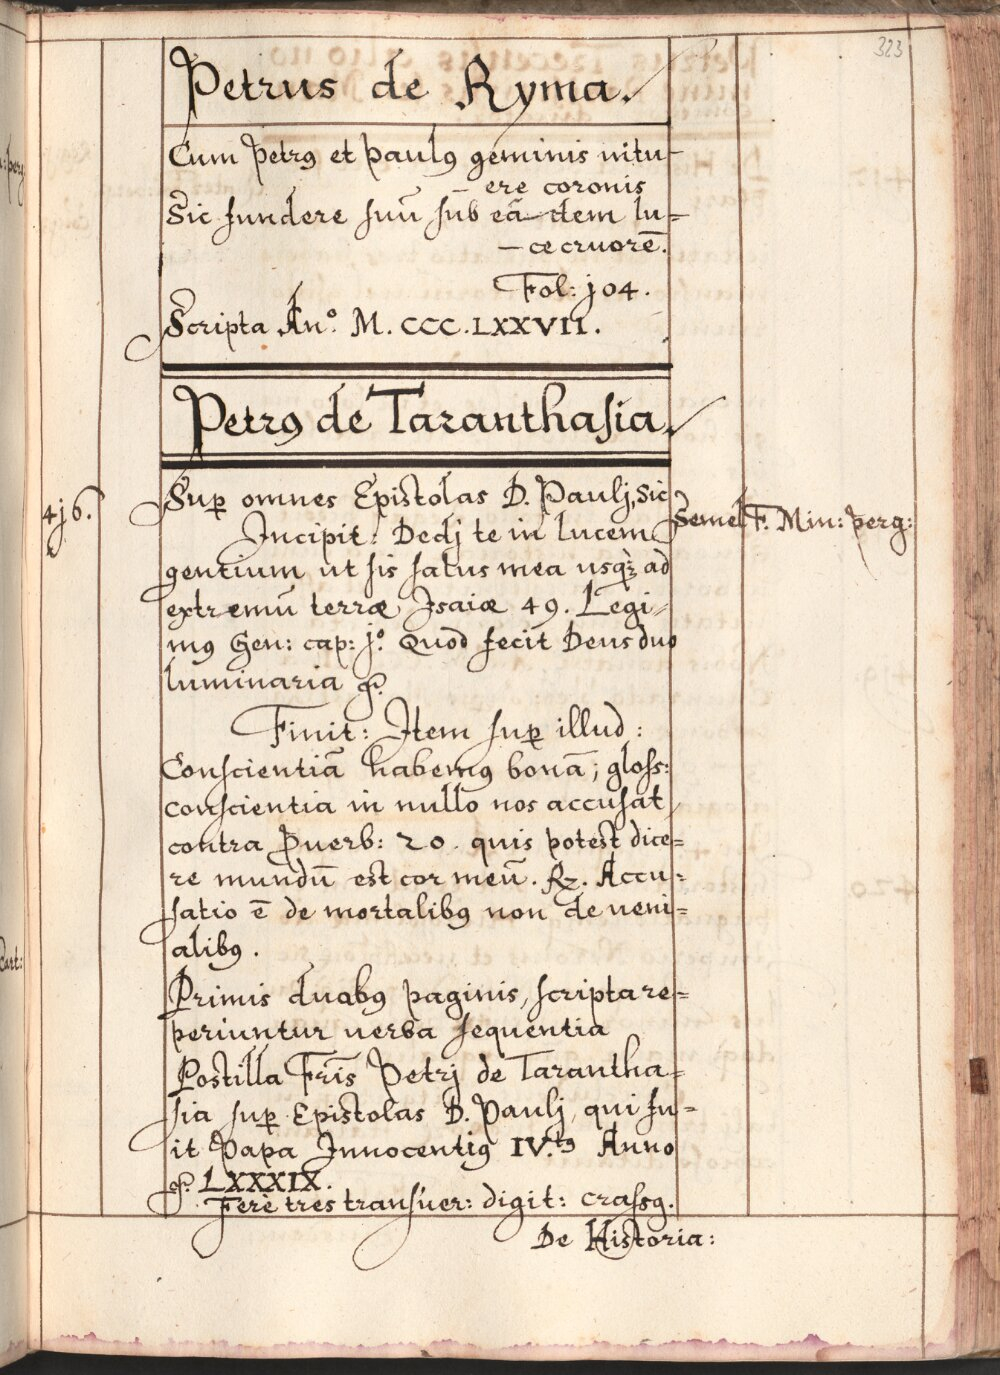 323
Petrus de Ryma.
Cum Petrꝰ et Paulꝰ geminis nitu-
- ere coronis
Sic fundere suū sub eā-dem lu=
- ce cruorē.
Fol: j04.
Scripta Anº. M. CCC. LXXVII.
Petrꝰ de Taranthasia.
4j6.
Suꝑ omnes Epistolas D. Paulj, sic
Semel F. Min: perg:
Incipit: Dedj te in lucem
gentium ut sis salus mea usqꝫ ad
extremū terræ Isaiæ 49. Legi-
mꝰ Gen: cap: jº. Quod fecit Deus duo
luminaria
Finit: Item suꝑ illud:
Conscientiā habemꝰ bonā; gloss:
conscientia in nullo nos accusat,
contra Proverb: 20. quis potest dice=
re mundū est cor meū. Rz. Accu=
satio ē de mortalibꝰ non de veni=
alibꝰ.
Primis duabꝰ paginis, scripta re=
periuntur verba sequentia
Postilla Fris̄ Petrj de Tarantha=
sia suꝑ Epistolas B. Paulj, qui fu=
it Papa Innocentiꝰ IV.tꝰ Anno
LXXXIX.
Ferè tres transver: digit: crassꝰ.
De Historia:
cart: